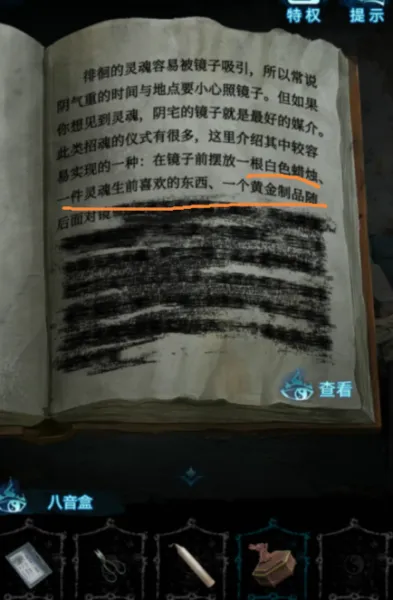 特权 提示
徘徊的灵魂容易被镜子吸引，所以常说
阴气重的时间与地点要小心照镜子。但如果
你想见到灵魂，阴宅的镜子就是最好的媒介。
此类招魂的仪式有很多，这里介绍其中较容
易实现的一种：在镜子前摆放一根白色蜡烛、
一件灵魂生前喜欢的东西、一个黄金制品随
后面对镜
查看
八音盒